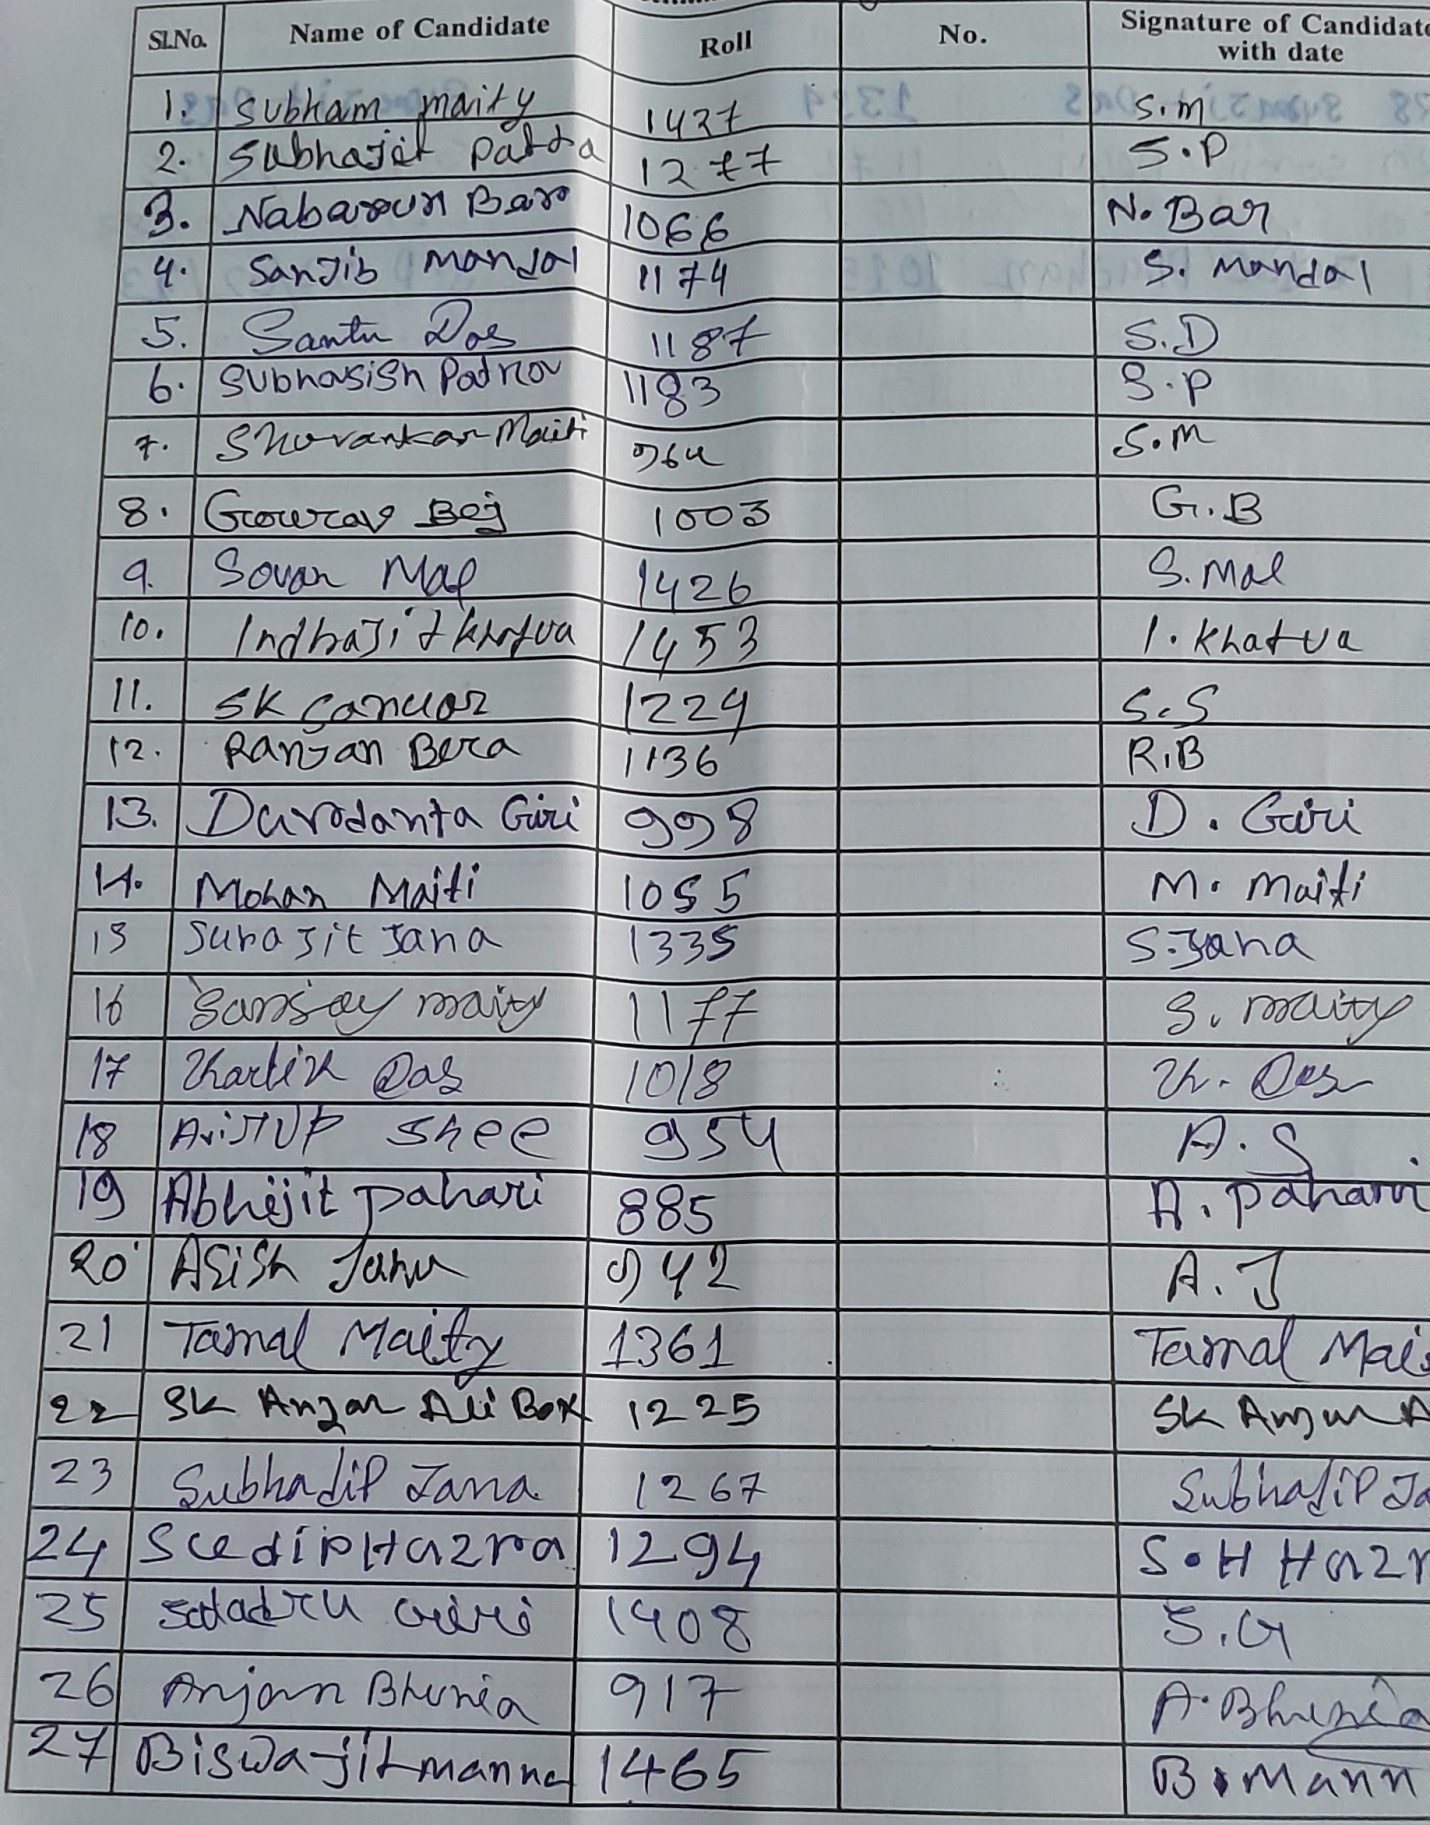 Sl.No. Name of Candidate Roll No. Signature of Candidate with date
1. Subham maity 1427 S.m
2. Subhajit Patra 1277 S.P
3. Nabaroun Bar 1066 N. Bar
4. Sanjib Mandal 1174 S. Mandal
5. Santu Das 1187 S.D
6. Subhasish Patra 1183 S.P
7. Maiti 964 S.M
8. Gourav Bej 1003 G.B
9. Sovan Mal 1426 S. Mal
10. Indrajit Khatua 1453 I. Khatua
11. SK Sanuar 1229 S.S
12. Ranjan Bera 1136 R.B
13. Giri 998 D. Giri
14. Mohan Maiti 1055 M. Maiti
15 Surajit Jana 1335 S. Jana
16 Sanjay maity 1177 S. maity
17 Khartik Das 1018 Kh. Das
18 Shee 954 A.S
19 Abhijit pahari 885 A. pahari
20 Asish Jana 942 A.J
21 Tamal Maity 1361 Tamal Mai
22 SK Anjar Ali Box 1225 SK Anjar A
23 Subhadip Jana 1267 Subhadip Ja
24 Hazra 1294 S.H Hazr
25 Satadru Giri 1408 S.G
26 Anjan Bhunia 917 A. Bhunia
27 Biswajit manna 1465 B. Mann